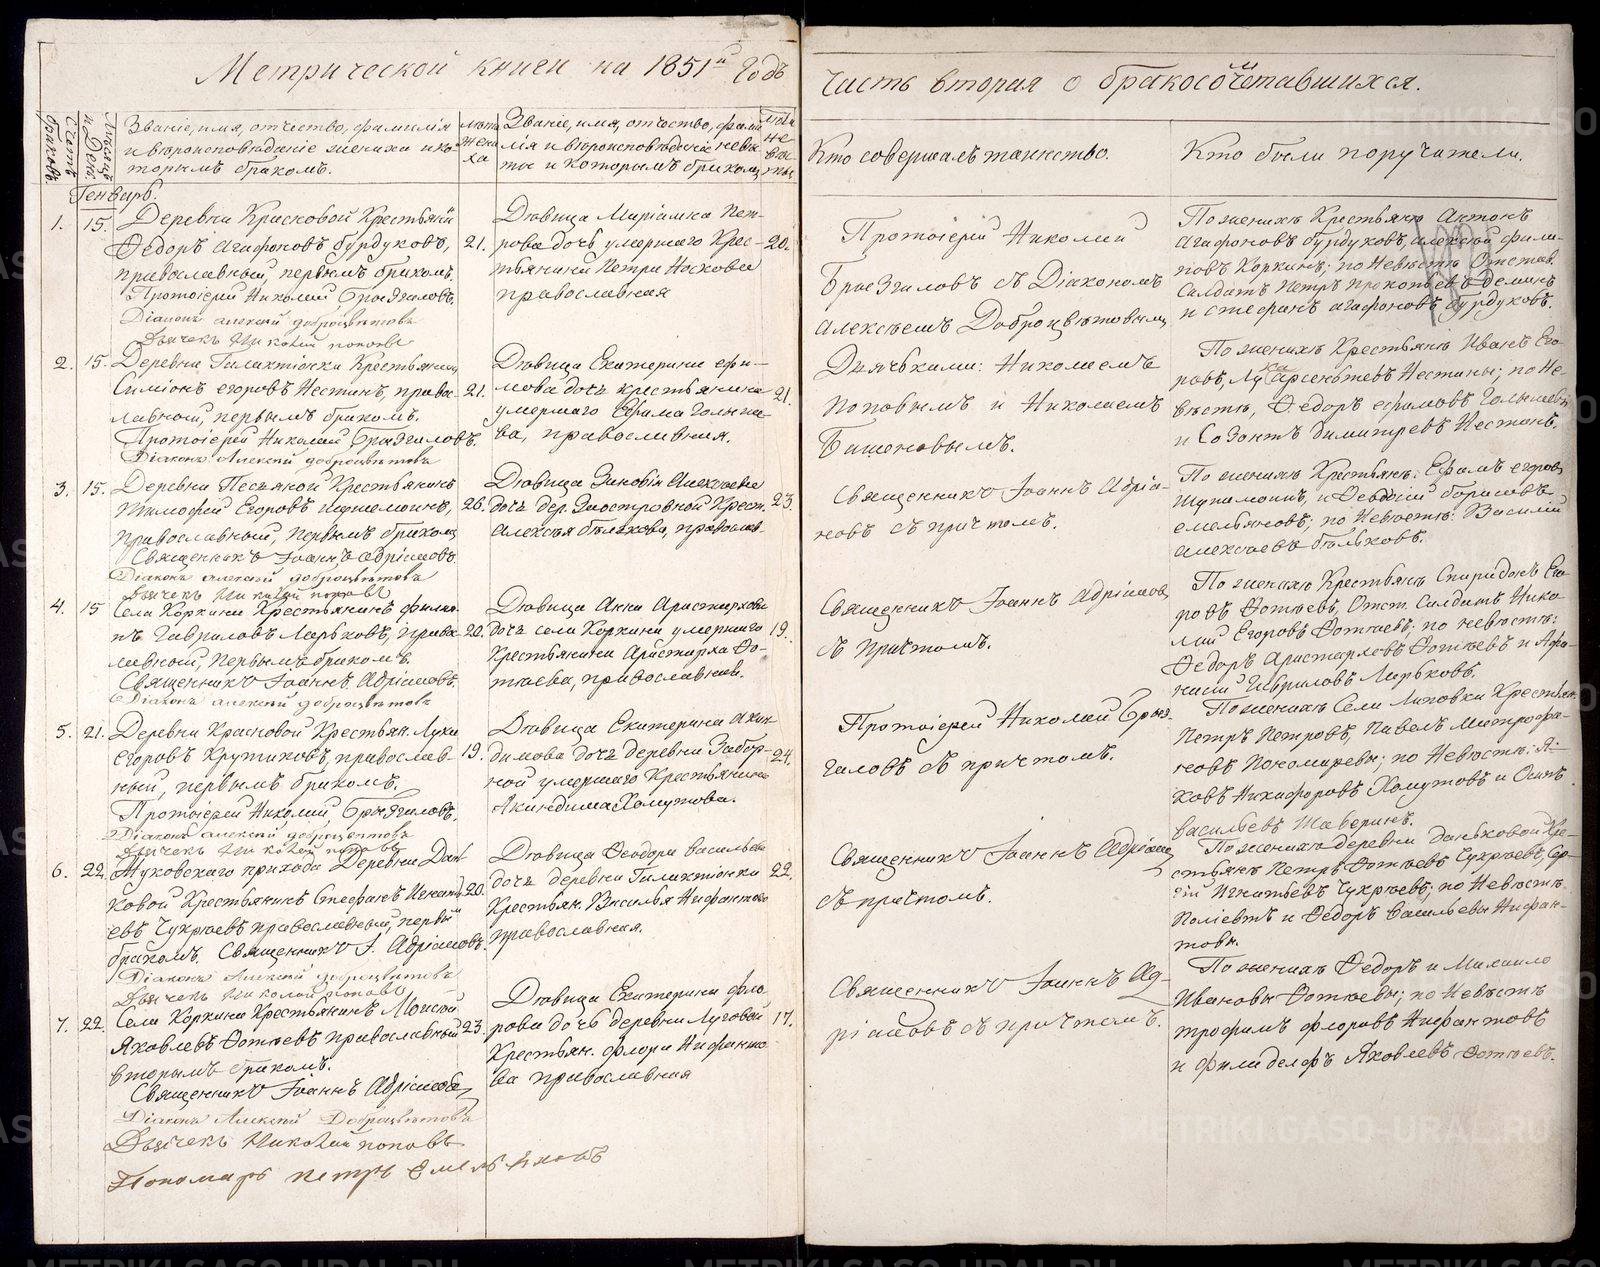 Метрической книги на 1851й Годъ
Часть вторая о бракосочетавшихся.
Мѣсяцъ и День.
Счетъ браковъ.
Званіе, имя, отчество, фамилія
и вѣроисповѣданіе жениха и ко-
торымъ бракомъ.
лѣта
жени
ха
Званіе, имя, отчество, фами
лія и вѣроисповѣданіе невѣ
сты и которымъ бракомъ
лѣта
не
вѣс
ты
Кто совершалъ таинство.
Кто были поручители.
Генварь.
1. 15. Деревни Красковой Крестьянинъ
Ѳедоръ Агафоновъ Бурдуковъ, 21.
православный, первымъ бракомъ,
Протоіерей Николай
Діаконъ Алексій Доброцвѣтовъ
Дьячекъ Николай Поповъ
Дѣвица Маріамна Пет-
рова дочь умершаго Крес- 20.
тьянина Петра Носкова
православная
Протоіерей Николай
съ Діакономъ
Алексѣемъ Доброцвѣтовымъ
Дьячьками: Николаемъ
Поповымъ и Николаемъ
По женихѣ Крестьяне Антонъ
Агафоновъ Бурдуковъ, Алексій Фили-
повъ Коркинъ; по Невѣстѣ Отстав.
Солдатъ Петръ Прокопьевъ Деминъ
и Стефанъ Агафоновъ Бурдуковъ.
2. 15. Деревни Галактіонки Крестьянинъ
Симіонъ Егоровъ Нестинъ, право- 21.
лавный, первымъ бракомъ.
Протоіерей Николай
Діаконъ Алексій Доброцвѣтовъ
Дѣвица Екатерина Ефи-
мова дочь крестьянина 21.
умершаго Ефима Голыше-
ва, православная.
По женихѣ Крестьяне Иванъ Его-
ровъ, Лука Арсеньтевъ Нестины; по Не-
вѣстѣ, Ѳедоръ Ефимовъ Голышевъ
и Созонтъ Димитревъ Нестинъ.
3. 15. Деревни Песьяной Крестьянинъ
Тимофей Егоровъ 26.
православный, первымъ бракомъ
Священникъ Іоаннъ Адріановъ
Діаконъ Алексій Доброцвѣтовъ
Дьячекъ Николай Поповъ
Дѣвица Зиновія Алексѣева
дочь дер. Заостровной Крест. 23.
Алексѣя Бѣлькова, православ.
Священникъ Іоаннъ Адріа-
новъ съ причтомъ.
По женихѣ Крестьяне: Ефимъ Егоровъ
и Борисовъ
Емельяновъ; по Невѣстѣ: Василій
Алексѣевъ Бѣльковъ.
4. 15 Села Коркина Крестьянинъ Филип-
пъ Гавриловъ Ларьковъ, право- 20.
славный, первымъ бракомъ.
Священникъ Іоаннъ Адріановъ.
Діаконъ Алексій Доброцвѣтовъ
Дѣвица Анна Аристархова
дочь села Коркина умершаго 19.
Крестьянина Аристарха Ѳо-
тѣева, православная.
Священникъ Іоаннъ Адріановъ
съ причтомъ.
По женихѣ Крестьяне Спиридонъ Его-
ровъ Ѳотѣевъ, Отст. Солдатъ Нико-
лай Егоровъ Ѳотѣевъ; по невѣстѣ:
Ѳедоръ Аристарховъ Ѳотѣевъ и Афа-
насій Гавриловъ Ларьковъ.
5. 21. Деревни Красновой Крестьян. Лука
Егоровъ Крутиковъ, православ- 19.
ный, первымъ бракомъ.
Протоіерей Николай
Діаконъ Алексій Доброцвѣтовъ
Дьячекъ Николай Поповъ
Дѣвица Екатерина Акин
димова дочь деревни Забор- 24.
ной умершаго Крестьянина
Акиндима Хомутова.
Протоіерей Николай
съ причтомъ.
По женихѣ Села Липовки Крестьян.
Петръ Петровъ, Павелъ Митрофа-
новъ Пономаревы; по Невѣстѣ: Я-
ковъ Никифоровъ Хомутовъ и Осипъ
Васильевъ Шаверинъ.
6. 22. Жуковскаго прихода Деревни Дань
ковой Крестьянинъ Стефанъ Игнать 20.
евъ Чукреевъ православный, первый
бракомъ. Священникъ І. Адріановъ.
Діаконъ Алексій Доброцвѣтовъ
Дьячекъ Николай Поповъ
Дѣвица Ѳеодора Васильева
дочь деревни Галактіонки 22.
Крестьян. Василья Нифантова
православная.
Священникъ Іоаннъ Адріановъ
съ причтомъ.
По женихѣ деревни Даньковой Кре-
стьяне Петръ Ѳотѣевъ Чукреевъ, Сер-
гій Игнатьевъ Чукреевъ; по Невѣстѣ
Поліевктъ и Ѳедоръ Васильевы Нифан-
товы.
7. 22. Села Коркина Крестьянинъ Моисей
Яковлевъ Ѳотѣевъ православный 23.
вторымъ бракомъ.
Священникъ Іоаннъ Адріановъ
Діаконъ Алексій Доброцвѣтовъ
Дьячекъ Николай Поповъ
Пономарь Петръ Емельяновъ
Дѣвица Екатерина Фло
рова дочь деревни Луговой 17.
Крестьян. Флора Нифанто
ва православная
Священникъ Іоаннъ Ад-
ріановъ съ причтомъ.
По женихѣ Ѳедоръ и Михаило
Ивановы Ѳотѣевы; по Невѣстѣ
Трофимъ Флоровъ Нифантовъ
и Филаделфъ Яковлевъ Ѳотѣевъ.
METRIKI.GASO-URAL.RU